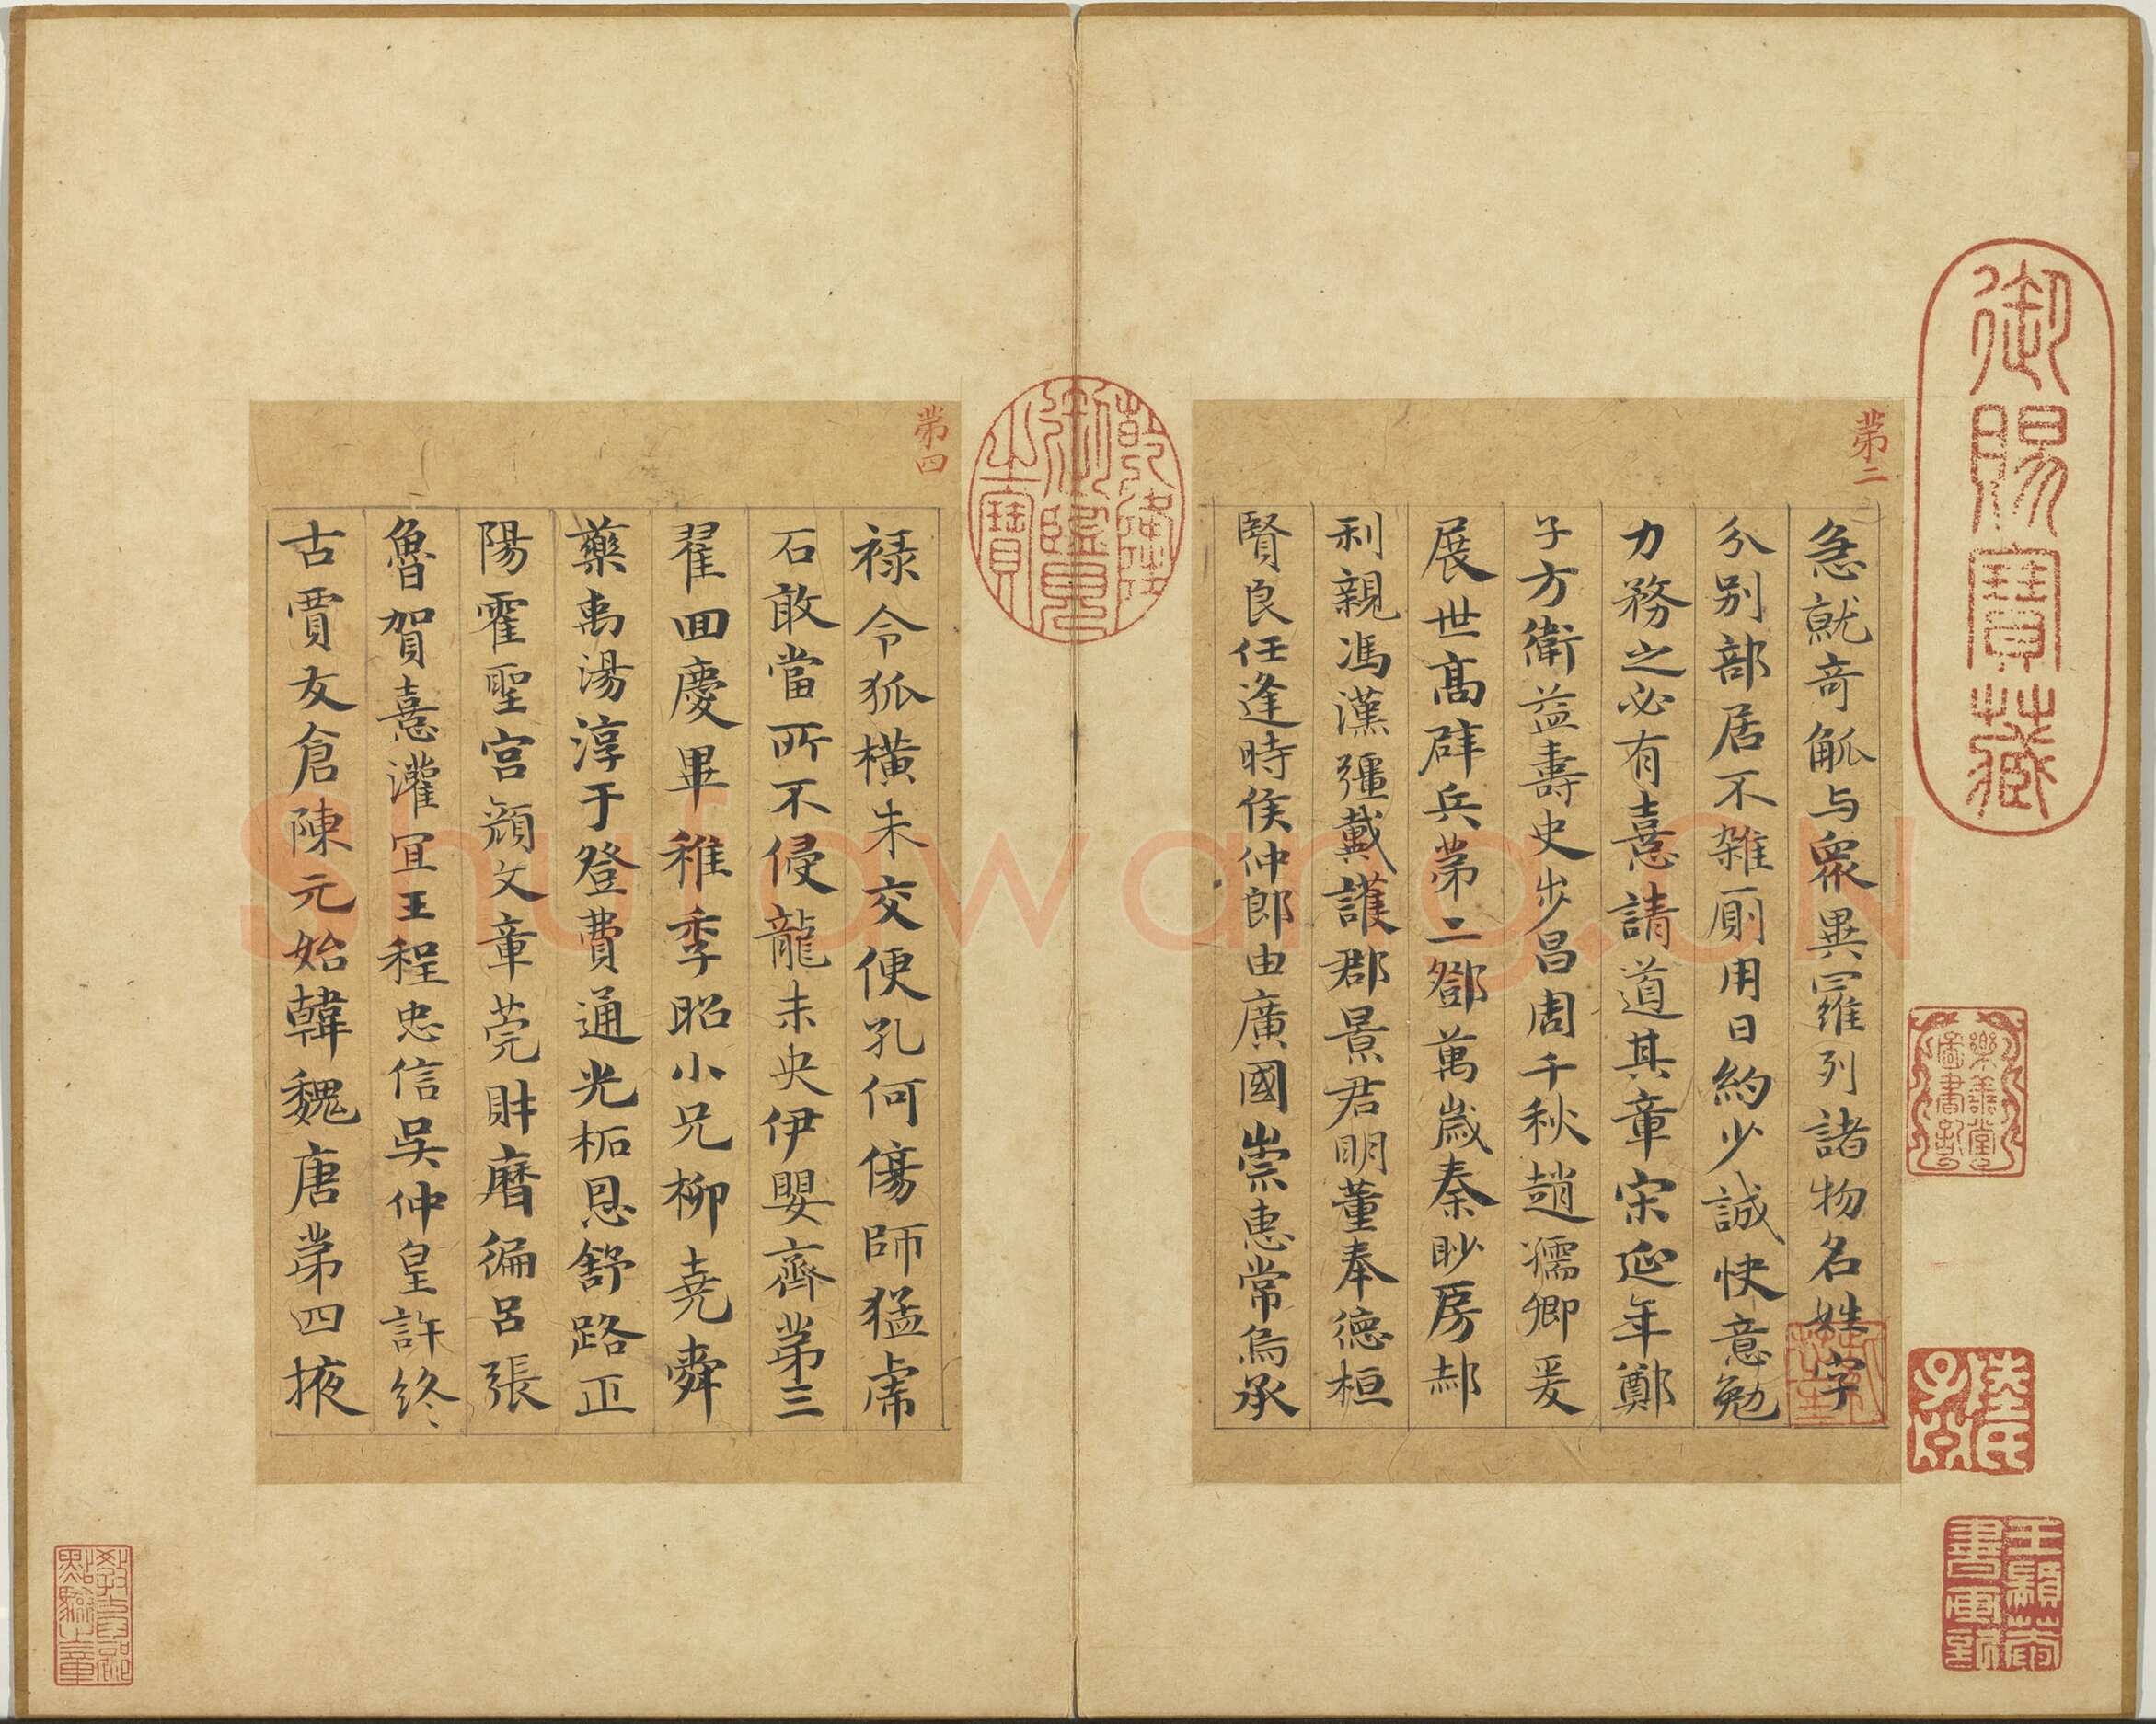 御賜寶藏
第二
急就奇觚与衆異羅列諸物名姓字
分别部居不雜厠用日約少誠快意勉
力務之必有憙請道其章宋延年鄭
子方衛益壽史步昌周千秋趙孺卿爰
展世高辟兵第二鄧萬歲秦眇房郝
利親馮漢彊戴護郡景君明董奉德桓
賢良任逢時侯仲郎由廣國崇惠常烏承
乾隆御覽之寶
第四
禄令狐橫朱交便孔何傷師猛虎
石敢當所不侵龍未央伊嬰齊第三
翟回慶畢稚季昭小兄柳堯舜
藥禹湯淳于登費通光柘恩舒路正
陽霍聖宮顔文章莞財曆徧呂張
魯賀憙灌宜王程忠信吴仲皇許終
古賈友倉陳元始韓魏唐第四掖
樂善堂圖書記
教育部點驗之章
shufawang.cn